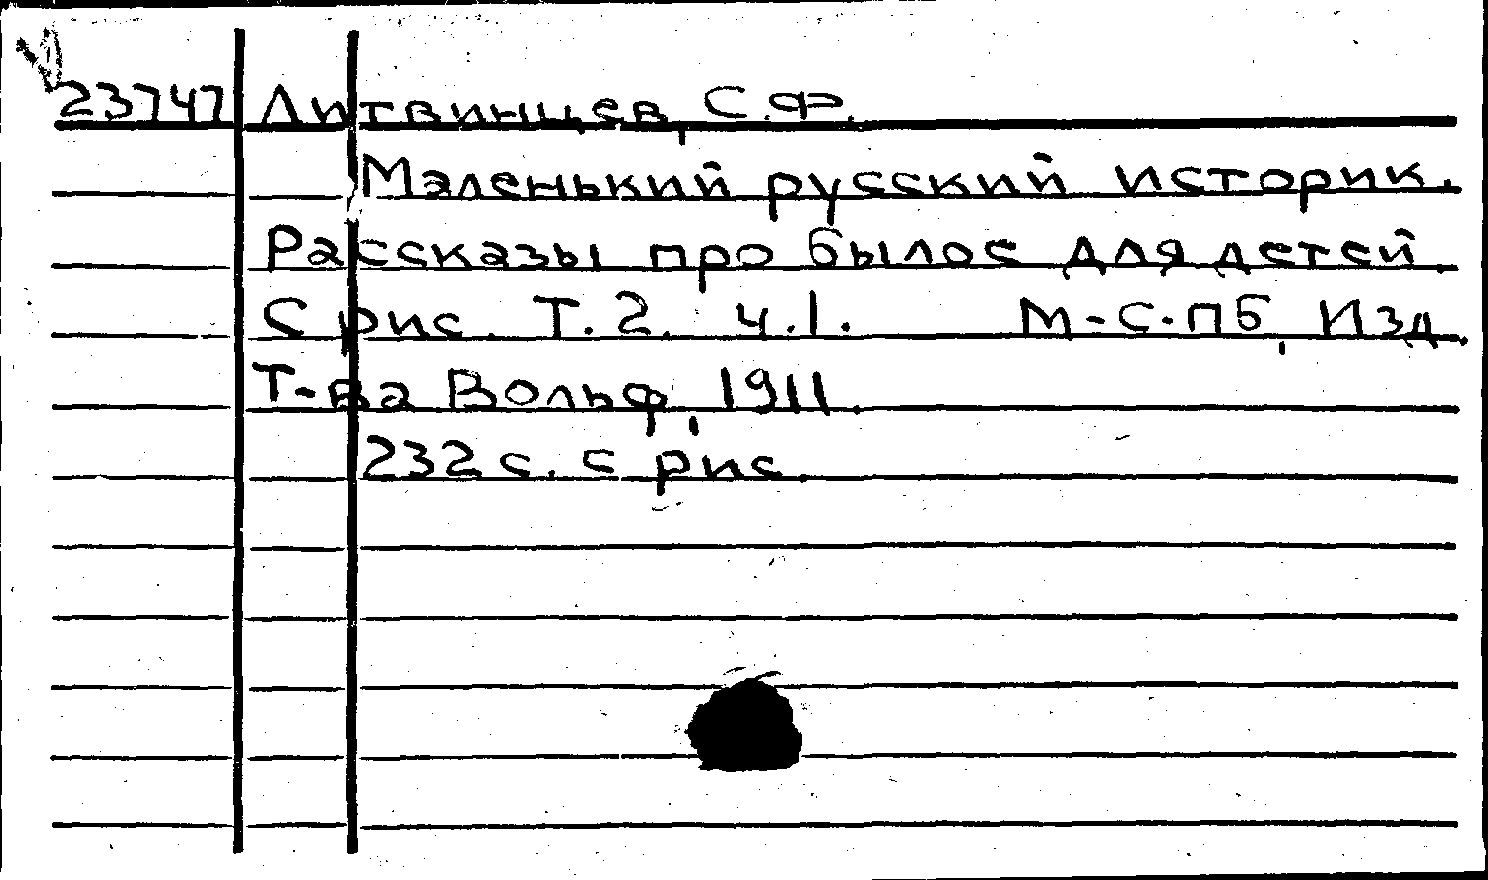 23747 Литвинцев, С.Ф.
Маленький русский историк.
Рассказы про былое для детей.
С рис. Т. 2. ч. 1. М.-С.-ПБ, Изд.
Т-ва Вольф, 1911.
232 с. с рис.